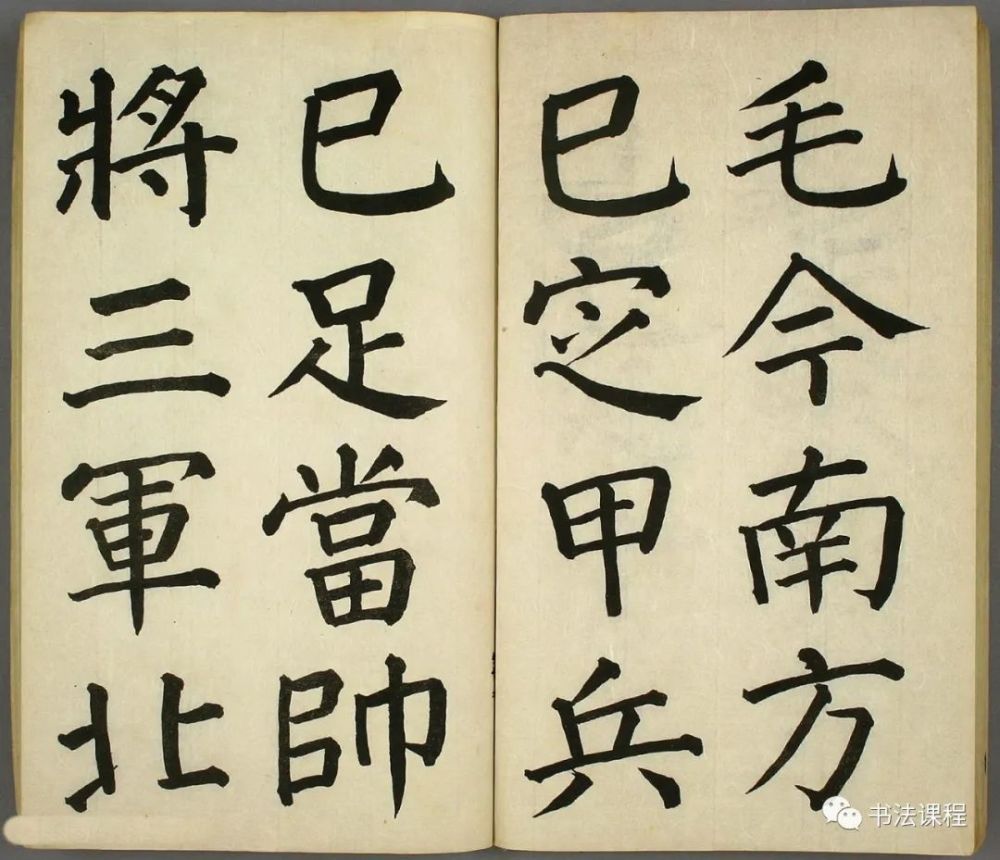 毛今南方
已定甲兵
已足當帥
將三軍北
书法课程